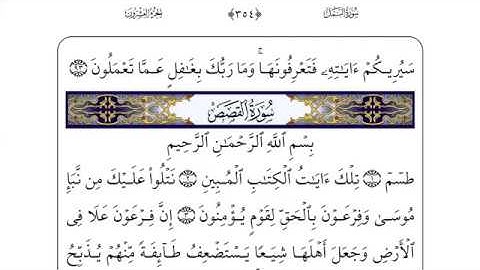 سُورَةُ النَّمْلِ ﴿٣٥٤﴾ الجُزْءُ العِشْرُونَ
سَيُرِيكُمْ ءَايَٰتِهِۦ فَتَعْرِفُونَهَا ۚ وَمَا رَبُّكَ بِغَٰفِلٍ عَمَّا تَعْمَلُونَ ٩٣
سُورَةُ القَصَصِ
بِسْمِ ٱللَّهِ ٱلرَّحْمَٰنِ ٱلرَّحِيمِ
طسٓمٓ ١ تِلْكَ ءَايَٰتُ ٱلْكِتَٰبِ ٱلْمُبِينِ ٢ نَتْلُوا۟ عَلَيْكَ مِن نَّبَإِ
مُوسَىٰ وَفِرْعَوْنَ بِٱلْحَقِّ لِقَوْمٍ يُؤْمِنُونَ ٣ إِنَّ فِرْعَوْنَ عَلَا فِى
ٱلْأَرْضِ وَجَعَلَ أَهْلَهَا شِيَعًا يَسْتَضْعِفُ طَآئِفَةً مِّنْهُمْ يُذَبِّحُ